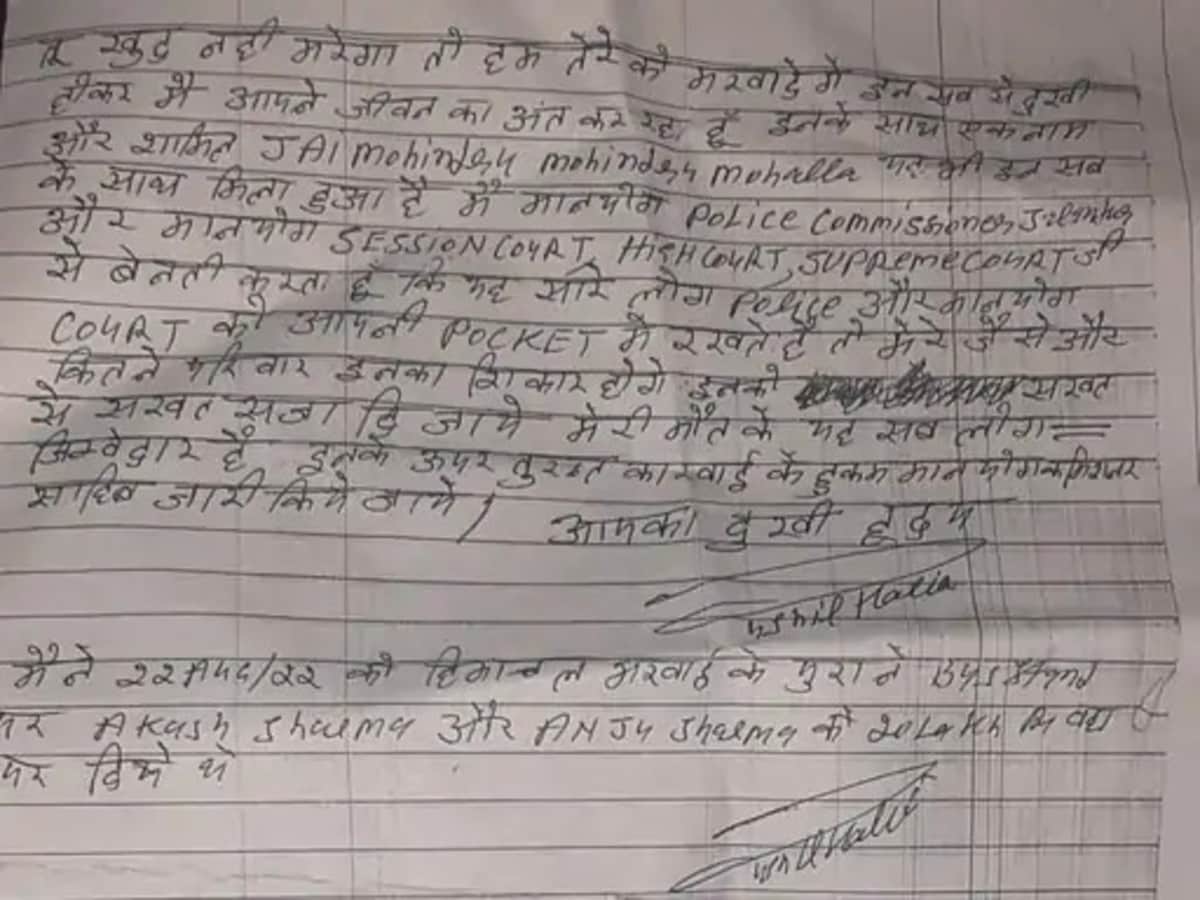 तू खुद नही मरेगा तो हम तेरे को मरवादेगे इन सब से दुखी
होकर मै आपने जीवन का अंत कर रहा हूँ इनके साथ एक नाम
और शामिल JAI Mohinderu Mohinderu Mohalla यह भी इन सब
के साथ मिला हुआ है मैं मानयोग POLICE Commissioner
और मानयोग SESSION COURT, HIGH COURT, SUPREME COURT जी
से बेनती करता हूँ कि यह सारे लोग Police और मानयोग
COURT को आपनी POCKET मे रखते है तो मेरे जैसे और
कितने परिवार इनका शिकार होगे इनको सखत
से सखत सजा दि जाये मेरी मौत के यह सब लोग
जिमेदार हैं इनके ऊपर तुरन्त कारवाई के हुकम मानयोग
साहिब जारी किये जाये /
आपका दुखी हृदय
मैने 22 AUG/22 को हिमाचल भरवाई के पुराने Bus Stand
पर Akash Sharma और ANJU Sharma को 20 Lakh
पर दिये थे